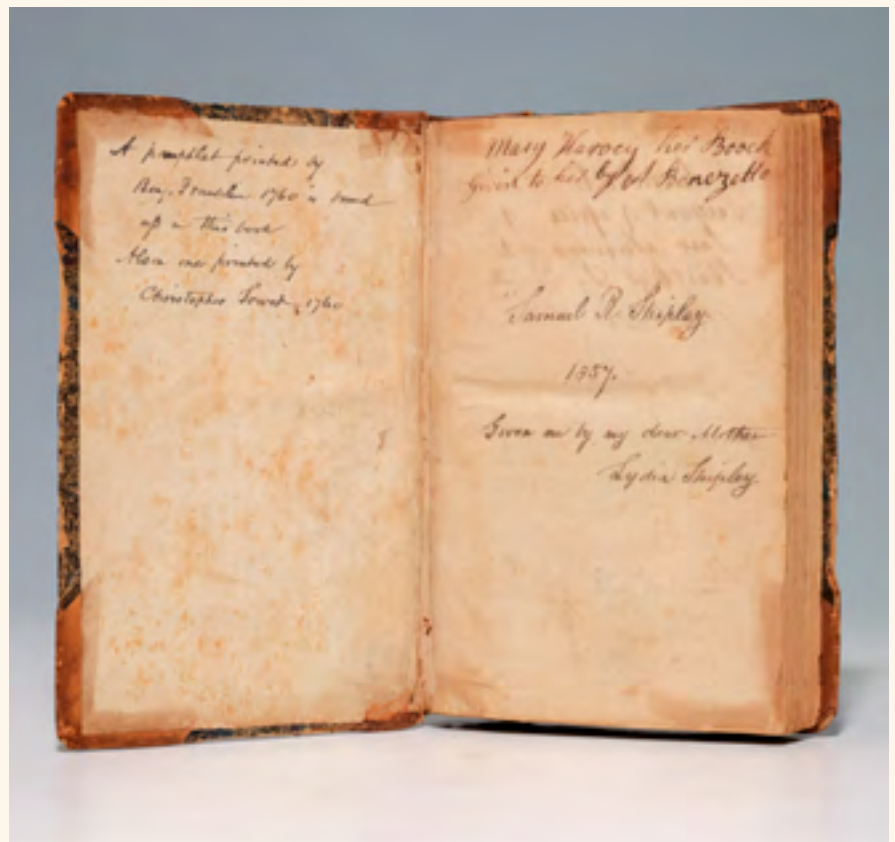 A pamphlet printed by
Benj. Franklin 1760 is bound
up in this book
Also one printed by
Christopher Sower, 1760
Mary Harvey her Boock
Given to her by A. Benezette
Samuel R. Shipley
1857.
Given me by my dear Mother
Lydia Shipley.